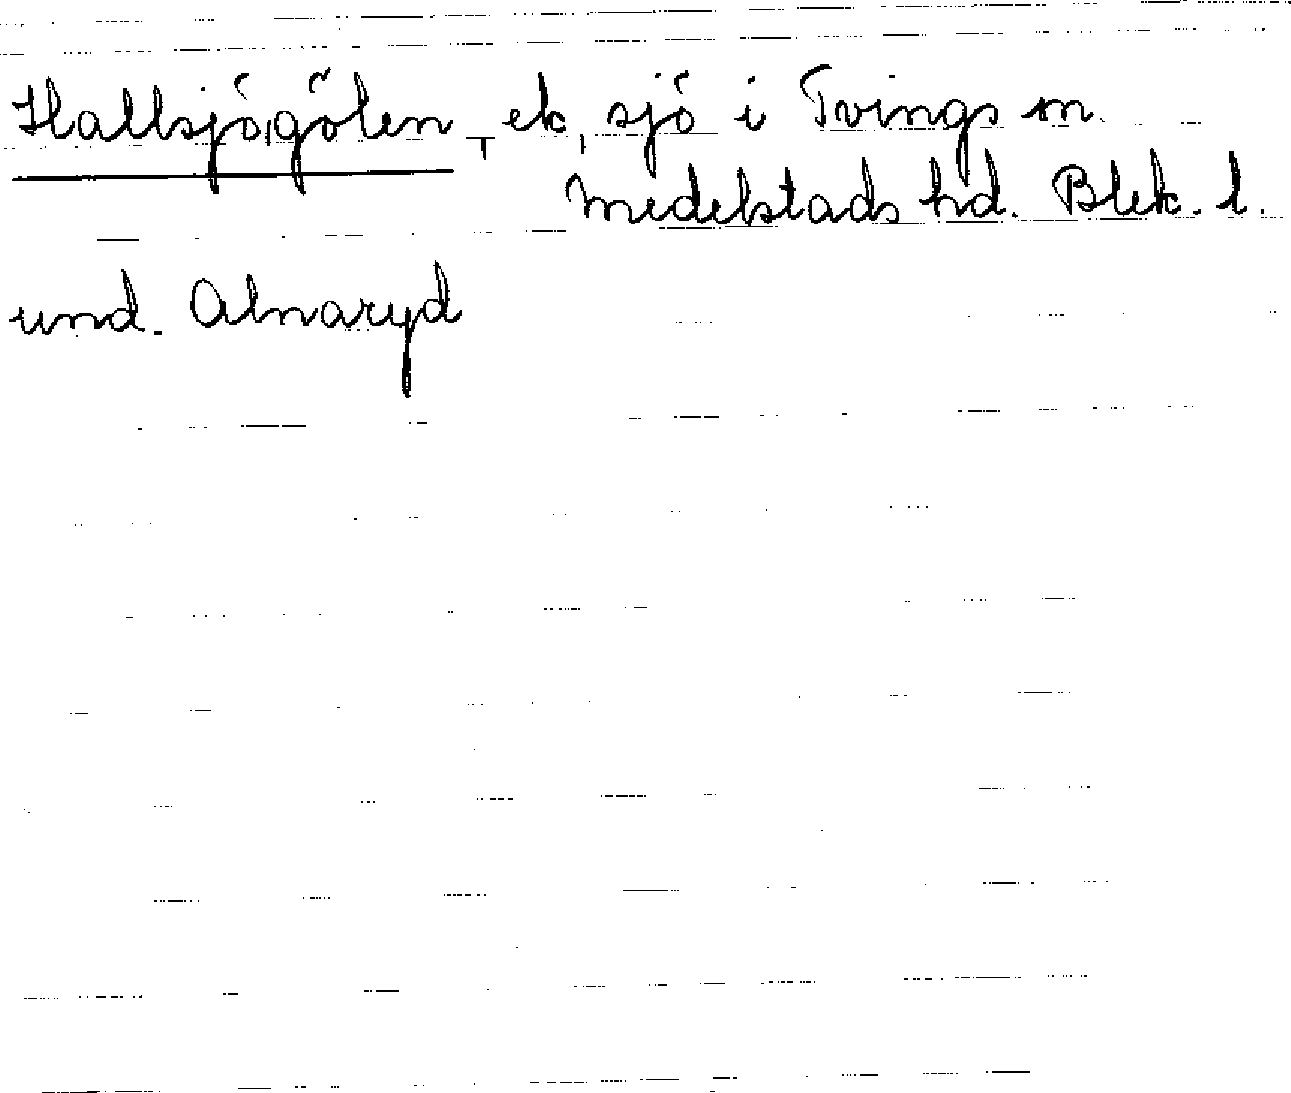 Hallsjögölen, ek, sjö i Tvings sn
Medelstads hd. Blek. l.
und. Alnaryd